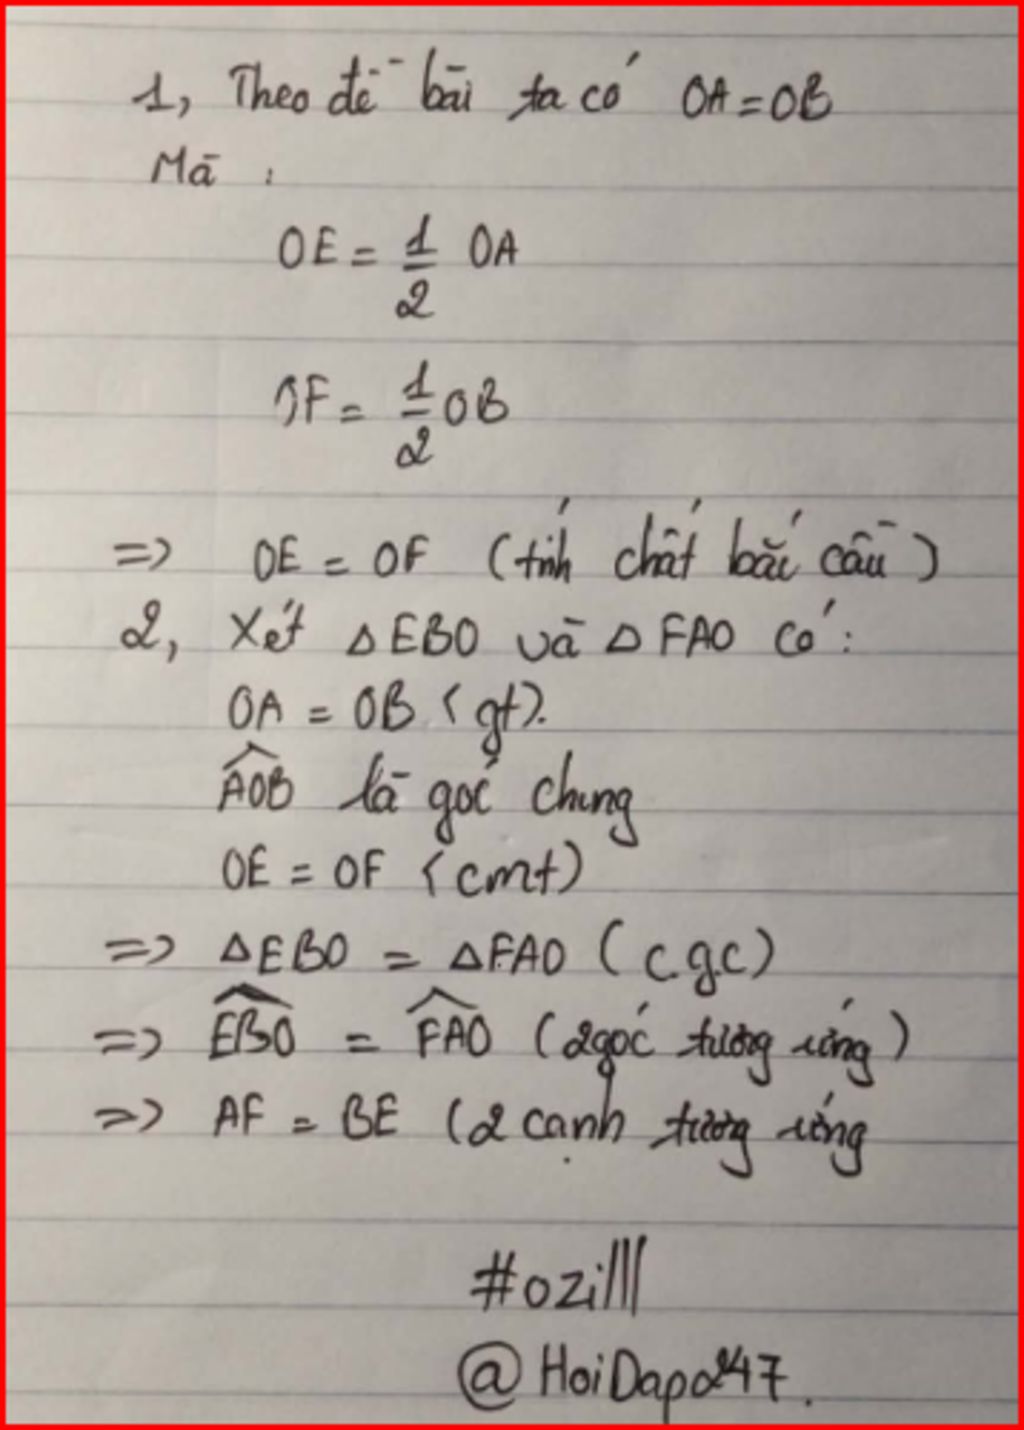 1, Theo đề bài ta có OA = OB
Mà :
OE = 1/2 OA
OF = 1/2 OB
=> OE = OF (tính chất bắc cầu)
2, Xét △EBO và △FAO có :
OA = OB (gt).
\widehat{AOB} là góc chung
OE = OF (cmt)
=> △EBO = △FAO (c.g.c)
=> \widehat{EBO} = \widehat{FAO} (2 góc tương ứng)
=> AF = BE (2 cạnh tương ứng
#ozilll
@HoiDap247.